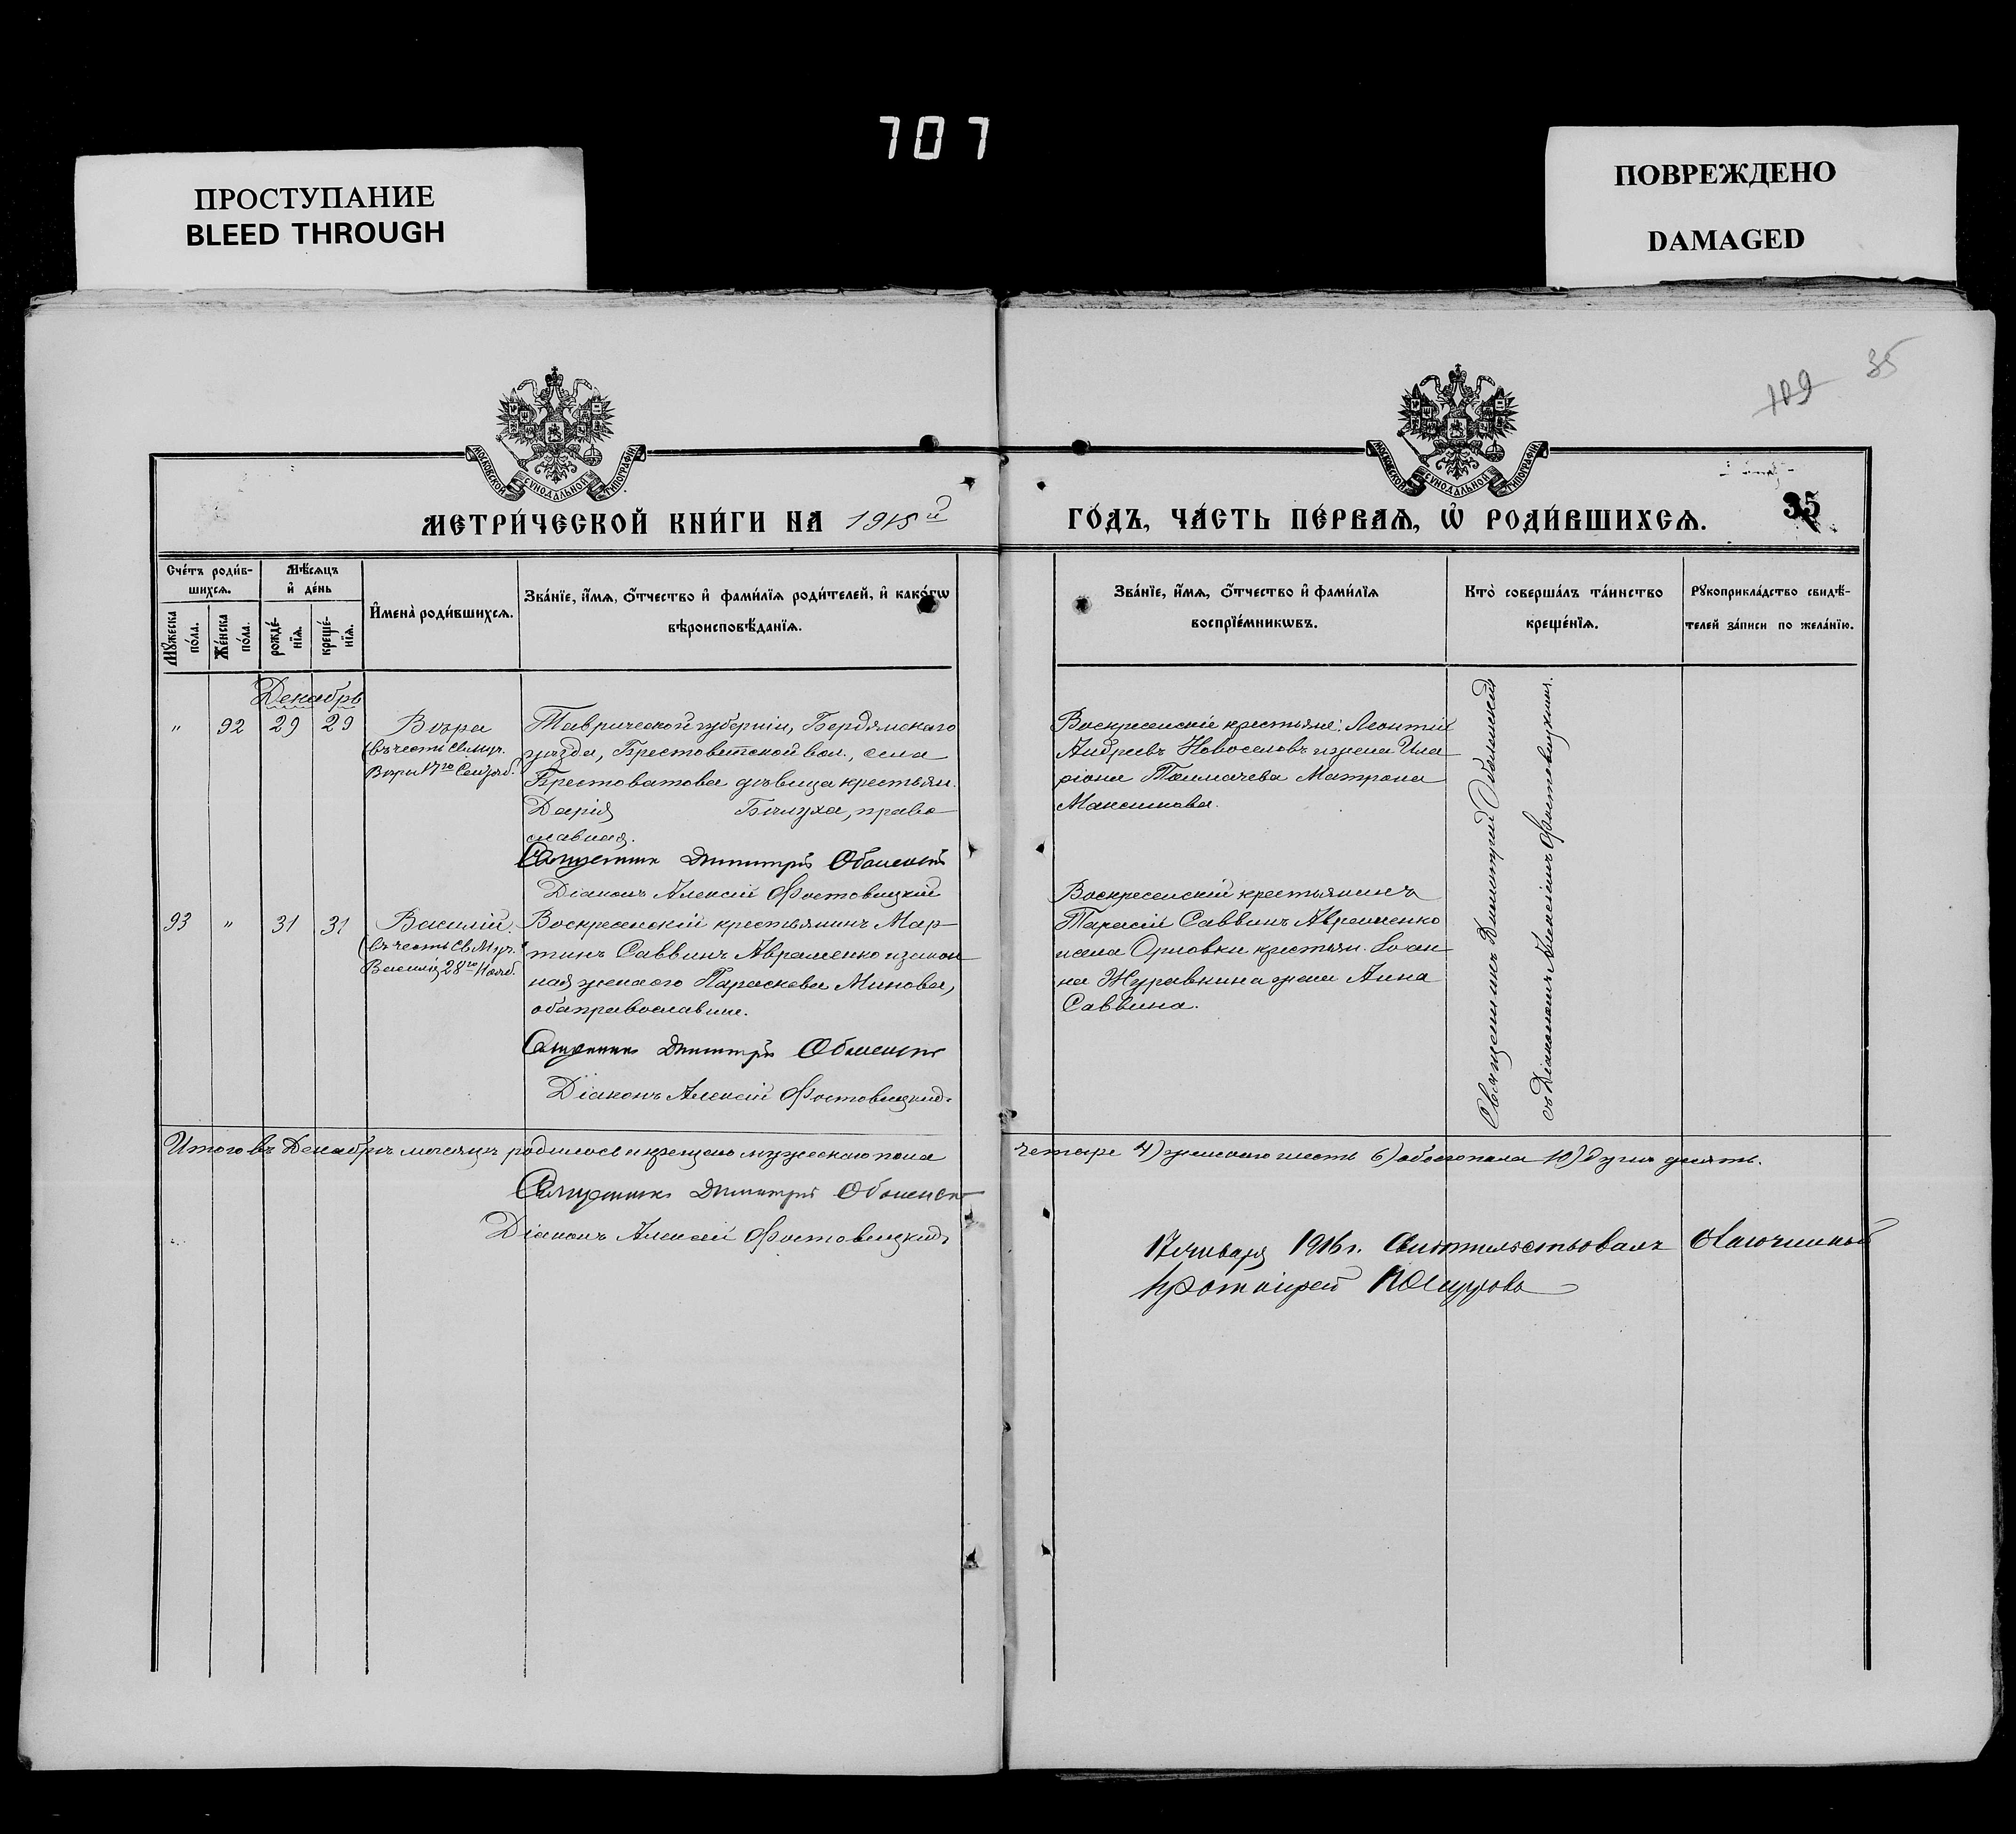 707
ПРОСТУПАНИЕ
BLEED THROUGH
ПОВРЕЖДЕНО
DAMAGED
109 35
МОСКОВСКОЙ СУНОДАЛЬНОЙ ТИПОГРАФІИ
МОСКОВСКОЙ СУНОДАЛЬНОЙ ТИПОГРАФІИ
МЕТРИ́ЧЕСКОЙ КНИ́ГИ НА 1915й
ГО́ДЪ, ЧА́СТЬ ПЕ́РВАѦ, Ѡ҆ РОДИ́ВШИХСѦ.
35
Сче́тъ роди́в-
шихсѧ.
Мѣ́сѧцъ
и҆ де́нь
Мꙋ́жеска по́ла.
Же́нска по́ла.
рожде́-
нїѧ.
креще́-
нїѧ.
И҆мена̀ роди́вшихсѧ.
Зва́нїе, и҆́мѧ, ѻ҆́тчество и҆ фами́лїѧ роди́телей, и҆ како́гѡ
вѣроисповѣ́данїѧ.
Зва́нїе, и҆́мѧ, ѻ҆́тчество и҆ фами́лїѧ
воспрїе́мникѡвъ.
Кто̀ соверша́лъ та́инство
креще́нїѧ.
Рꙋкоприкла́дство свидѣ́-
телей за́писи по жела́нїю.
Декабрь
" 92 29 29 Вѣра
(въ честь Св. муч.
Вѣры 17го Сентяб.)
Таврической губерніи, Бердянскаго
уѣзда, Берестоватской вол., села
Берестоватова дѣвица крестьян.
Дарія Бѣлуха, право-
славная.
Священникъ Димитрій Оболенскій
Діаконъ Алексій Фостовицкій
Воскресенскіе крестьяне: Леонтій
Андреевъ Новоселовъ и жена Ила-
ріона Толмачева Матрона
Максимова.
Священникъ Димитрій Оболенскій
съ Діакономъ Алексіемъ Фостовицкимъ.
93 " 31 31 Василій.
(въ честь Св. Муч.
Василія 28го Нояб.
Воскресенскій крестьянинъ Мар-
тинъ Саввинъ Авраменко и закон-
ная жена его Параскева Минова,
оба православные.
Священникъ Димитрій Оболенскій
Діаконъ Алексій Фостовицкій.
Воскресенскій крестьянинъ
Тарасій Саввинъ Авраменко
и села Орловки крестьян. Іоан-
на Журавкина жена Анна
Саввина.
Итого въ Декабрѣ мѣсяцѣ родилось и крещено мужескаго пола
четыре 4) женскаго шесть 6) обоего пола 10) душъ десять.
Священникъ Димитрій Оболенскій
Діаконъ Алексій Фостовицкій
17 января 1916 г. Свидѣтельствовалъ
Протоіерей